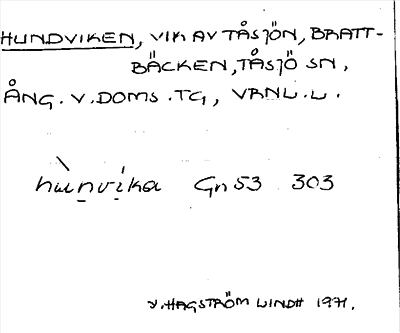 HUNDVIKEN, VIK AV TÅSJÖN, BRATT-
BÄCKEN, TÅSJÖ SN,
ÅNG. V. DOMS. TG, VRNL. L.
hùn̠vi̠ka Gn53 303
V. HAGSTRÖM LINDH 1971.